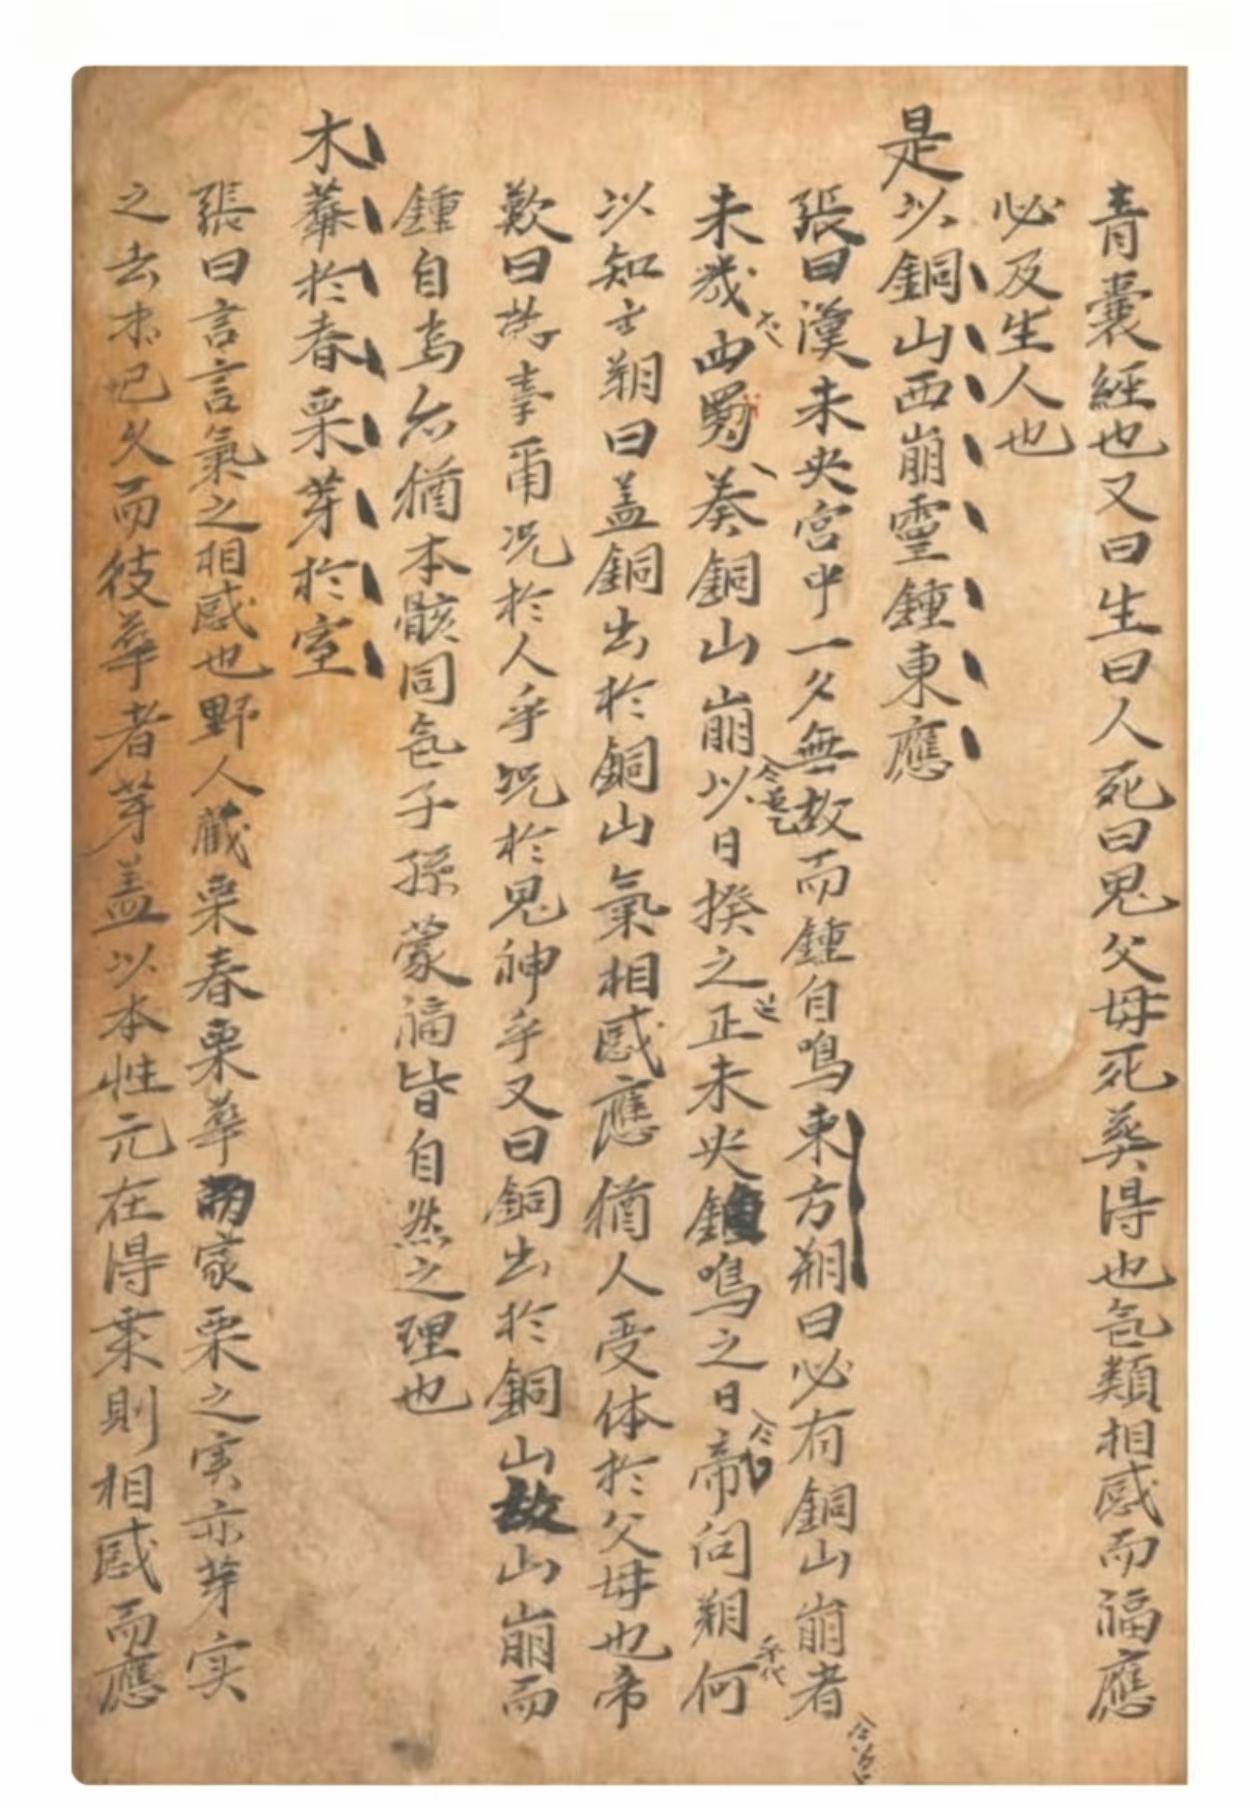 青囊經也又曰生曰人死曰鬼父母死葬得也氣類相感而福應
必及生人也
是以銅山西崩靈鍾東應
張曰漢未央宮中一夕無故而鍾自鳴東方朔曰必有銅山崩者
未幾西蜀奏銅山崩以日揆之正未央鍾鳴之日帝问朔何
以知之朔曰盖銅出於銅山氣相感應猶人受体於父母也帝
歎曰物害爾况於人乎况於鬼神乎又曰銅出於銅山故山崩而
鍾自鸣亦猶本骸同氣子孫蒙福皆自然之理也
木華於春栗芽於室
張曰言言氣之相感也野人藏栗春栗華而家栗之实亦芽实
之去本已久而彼華者芽盖以本性元在得氣則相感而應